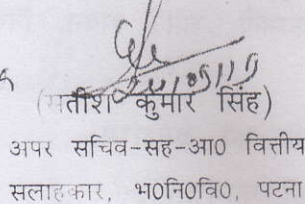 (सतीश कुमार सिंह)
अपर सचिव-सह-आ० वित्तीय
सलाहकार, भ०नि०वि०, पटना